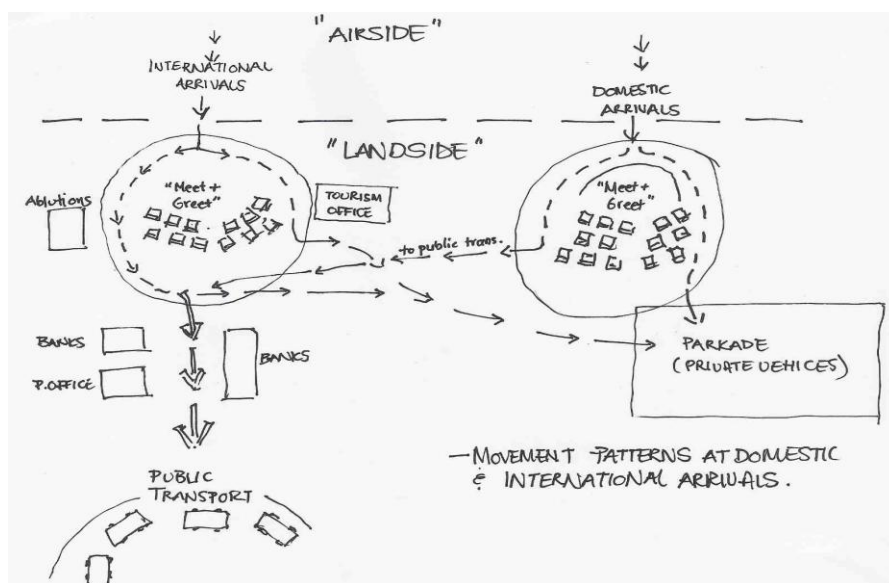 "AIRSIDE"
INTERNATIONAL
ARRIVALS
DOMESTIC
ARRIVALS
"LANDSIDE"
"Meet +
Greet"
Ablutions
TOURISM
OFFICE
to public trans.
"Meet +
Greet"
BANKS
P.OFFICE
BANKS
PARKADE
(PRIVATE VEHICLES)
PUBLIC
TRANSPORT
- MOVEMENT PATTERNS AT DOMESTIC
& INTERNATIONAL ARRIVALS.